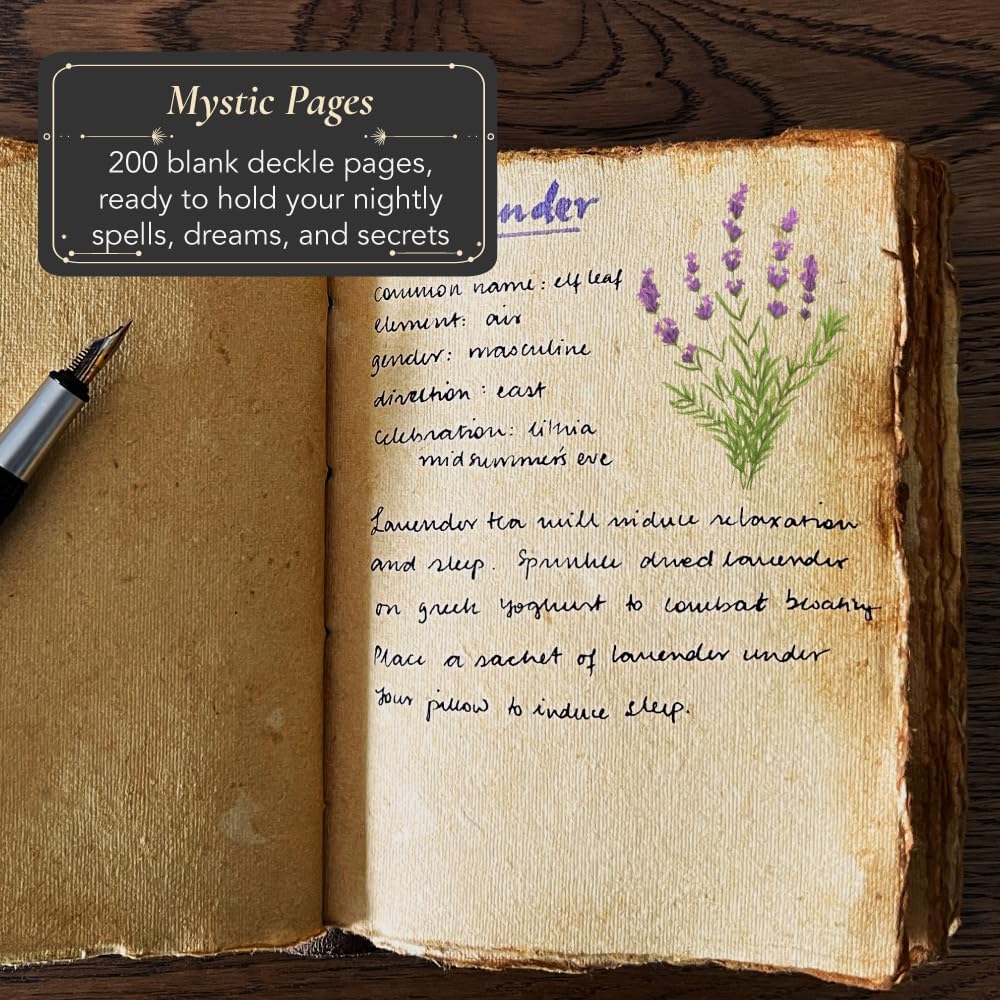 Mystic Pages
200 blank deckle pages,
ready to hold your nightly
spells, dreams, and secrets
nder
common name: elf leaf
element: air
gender: masculine
direction: east
celebration: lithia
midsummer's eve
Lavender tea will induce relaxation
and sleep. Sprinkle dried lavender
on greek yoghurt to combat bloating
Place a sachet of lavender under
your pillow to induce sleep.